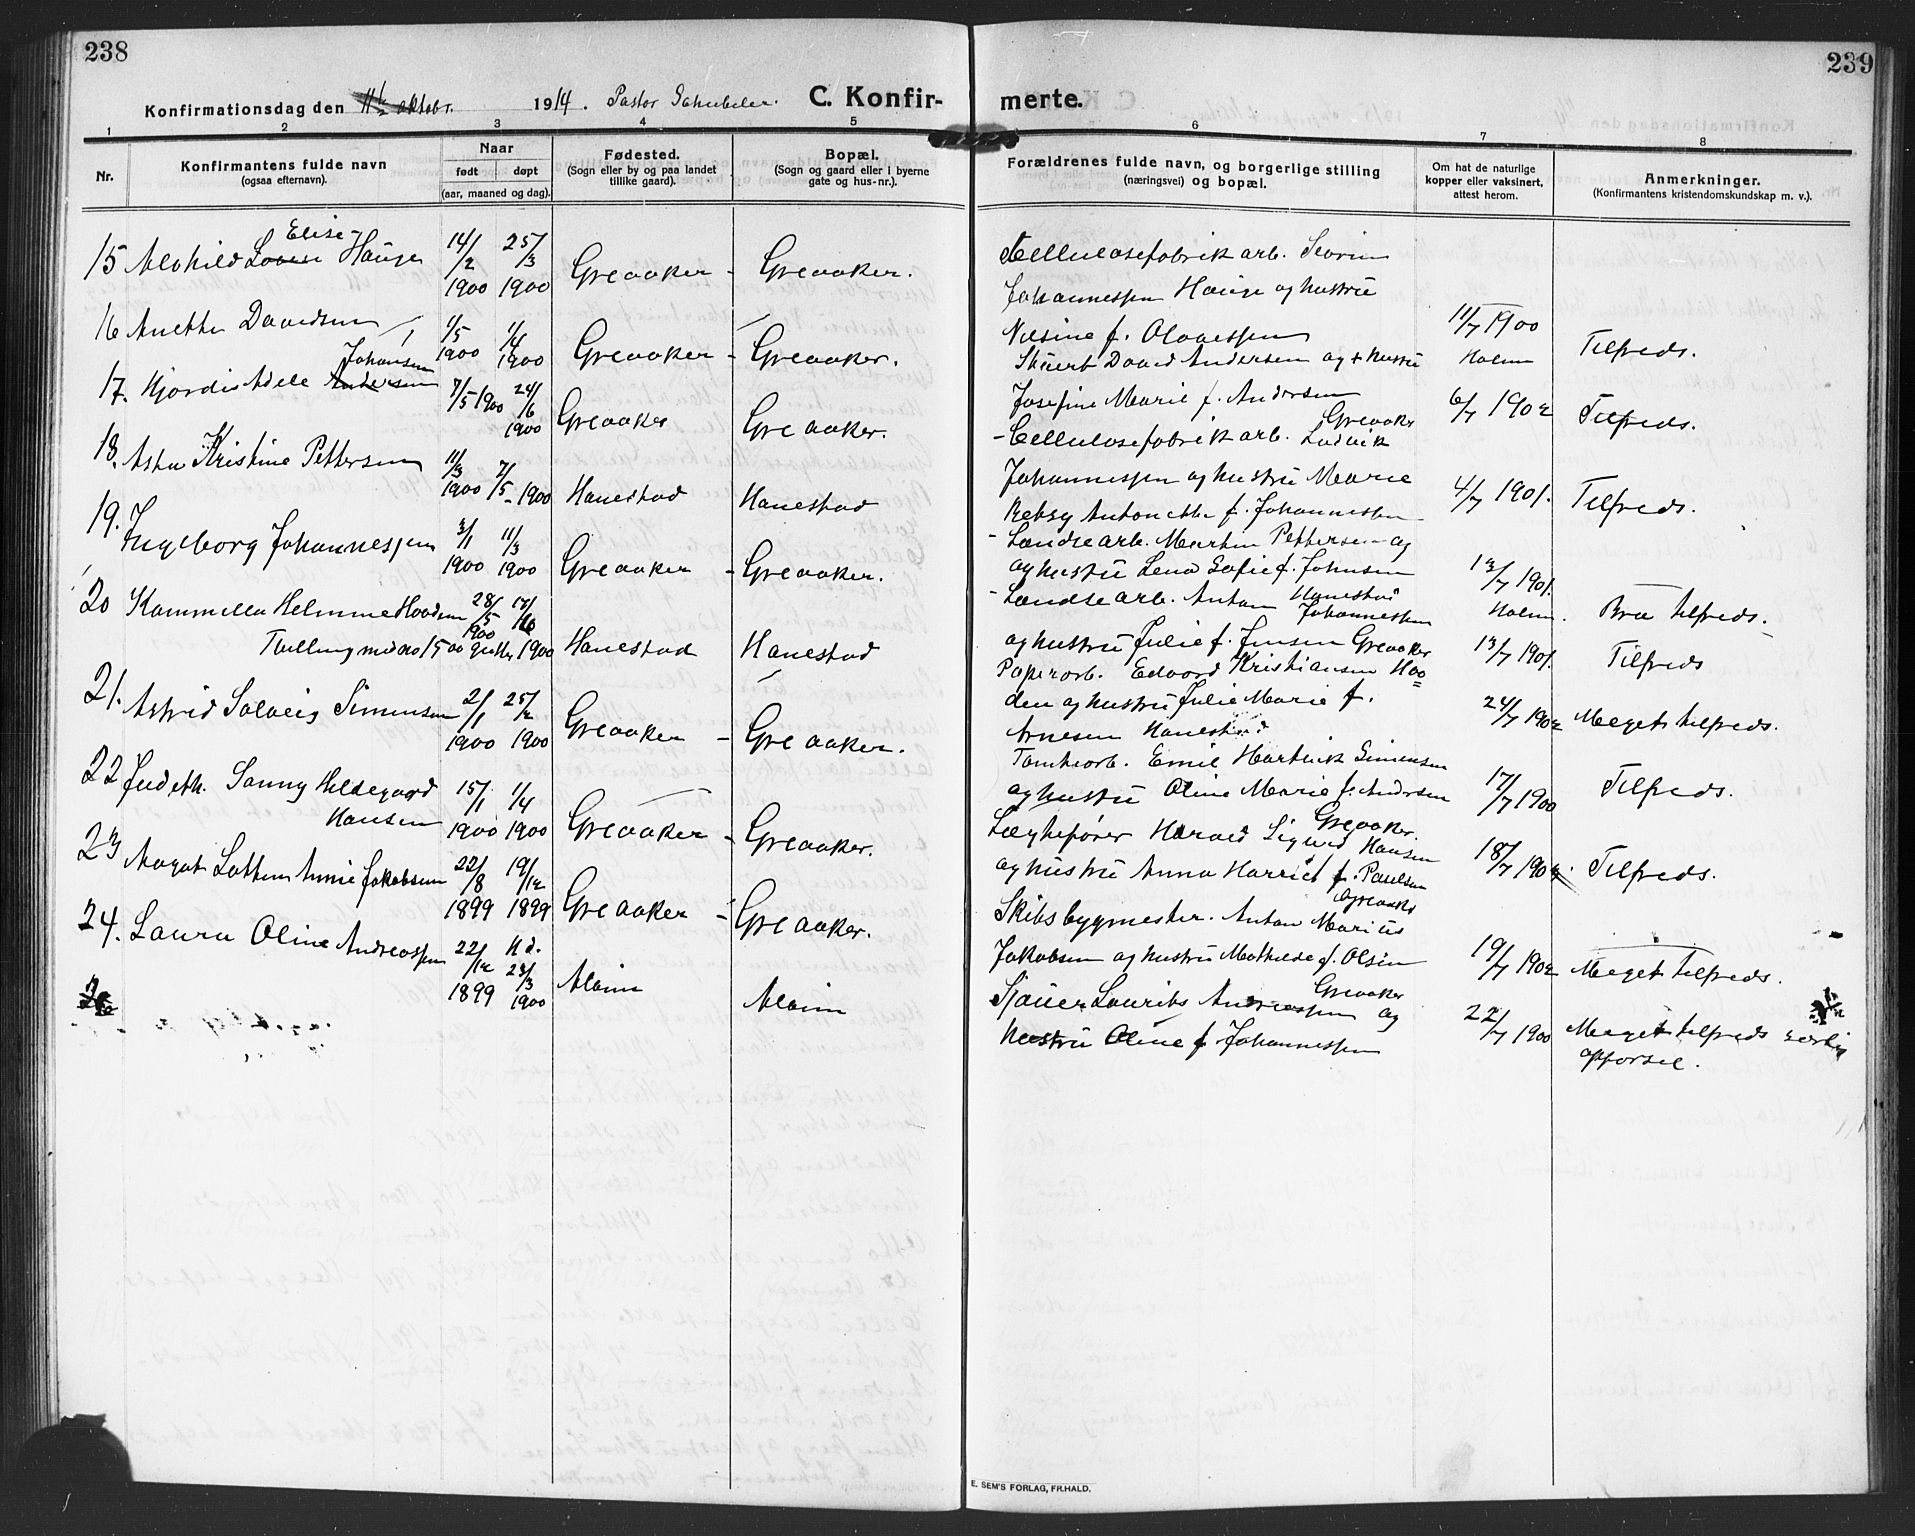 238
239
Konfirmationsdag den oktobr. 1914. Pastor
C. Konfir-
merte.
1 2 3 4 5
6 7 8
Nr.
Konfirmantens fulde navn
(ogsaa efternavn).
Naar
født døpt
(aar, maaned og dag).
Fødested.
(Sogn eller by og paa landet
tillike gaard).
Bopæl.
(Sogn og gaard eller i byerne
gate og hus-nr.).
Forældrenes fulde navn, og borgerlige stilling
(næringsvei) og bopæl.
Om hat de naturlige
kopper eller vaksinert,
attest herom.
Anmerkninger.
(Konfirmantens kristendomskundskap m. v.).
Elise
15 Alvhild Lovise Hauge 14/2 1900 25/3 1900 Greaaker - Greaaker.
16 Anette Davidsen 1/5 1900 1/4 1900 Greaaker - Greaaker.
Johansen
17. Hjordis Adele Andersen 7/5 1900 24/6 1900 Greaaker Greaaker.
18. Asta Kristine Pettersen 11/3 1900 7/5 - 1900 Hanestad Hanestad
19. Ingeborg Johannessen 3/1 1900 11/3 1900 Greaaker - Greaaker.
20 Kammilla Helmine Hooden 28/5 1900 17/6 1900 Hanestad Hanestad
Tvilling
21. Astrid Solveig Simensen 2/1 1900 25/2 1900 Greaaker - Greaaker.
22 Judeth. Sanny Hildegaard
Hansen 15/1 1900 1/4 1900 Greaaker - Greaaker.
23 Magot Lotten Annie Jakobsen 22/8 1899 19/12 1899 Greaaker - Greaaker.
24. Laura Oline Andreassen 22/12 1899 Hd. 23/3 1900 Alvim Alvim
Cellulosefabrik arb. Sevrin
Johannessen Hauge og hustru
Nilsine f. Olavessen 11/7 1900
Skuerb David Andersen og + hustru Holm Tilfreds.
Josefine Marie f. Andersen 6/7 1902 Tilfreds.
Greaaker
- Cellulosefabrik arb. Ludvik
Johannessen og hustru Marie 4/7 1901. Tilfreds.
Betsy Antonette f. Johannessen
- Landsearb. Martin Pettersen og
og hustru Lena Sofie f. Johnsen 13/7 1901.
Hanestad
- Landsearb. Anton Johannessen Holm. Bra tilfreds.
og hustru Julie f. Jensen Greaaker 13/7 1901. Tilfreds
Paperarb. Edvard Kristiansen Hoo=
den og hustru Julie Marie f. 24/7 1902 Meget tilfreds.
Arnesen Hanestad
Tomtearb. Emil Hartvik Simensen
og hustru Oline Marie f. Andersen 17/7 1900 Tilfreds.
Greaaker.
Harald Sigurd Hansen
og hustru Anna Harriet f. Paulsen 18/7 1902. Tilfreds.
Greaaker
Skibsbygmester. Anton Marius
Jakobsen og hustru Mathilde f. Olsen 19/7 1902 Meget tilfreds.
Greaaker
Sjauer Laurits Andreassen og
hustru Oline f Johannessen 22/7 1900 Meget tilfreds
opførsel.
E. SEM'S FORLAG, FR.HALD.